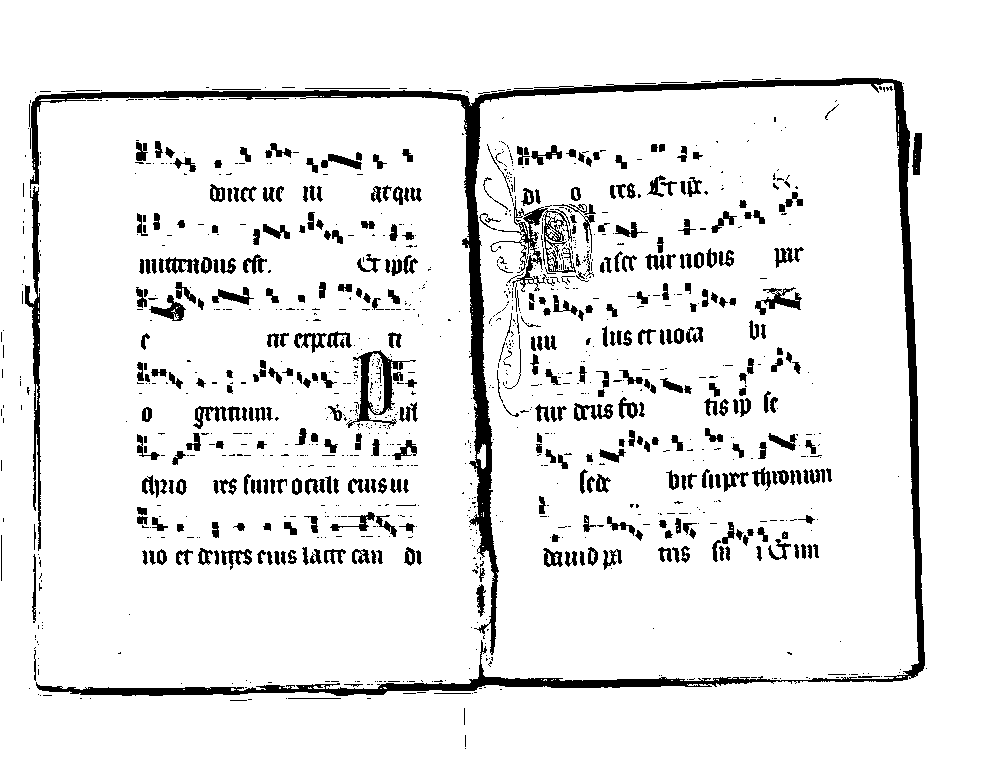 donec ue ni at qui
mittendus est. Et ipse
e rit expecta ti
o gentium. ℣. Pul
chrio res sunt oculi eius ui
no et dentes eius lacte can di
di o res. Et ip̄e.
Nascetur nobis par
uu lus et uoca bi
tur deus for tis ip se
sede bit super thronum
dauid pa tris su i Et im